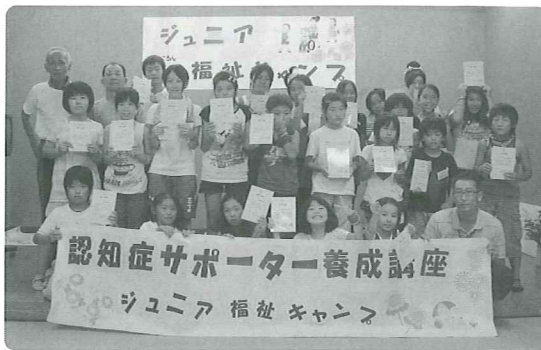 ジュニア
福祉キャンプ
認知症サポーター養成講座
ジュニア福祉キャンプ